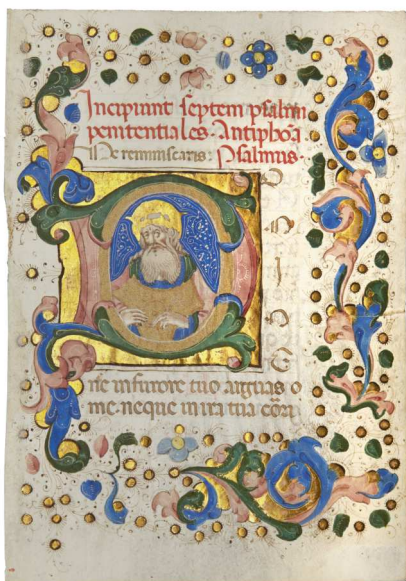 Incipiunt septem psalmi
penitentiales. Antiphoa
Ne reminiscaris: Psalmus.
D
ne in furore tuo arguas
me neque in ira tua corri